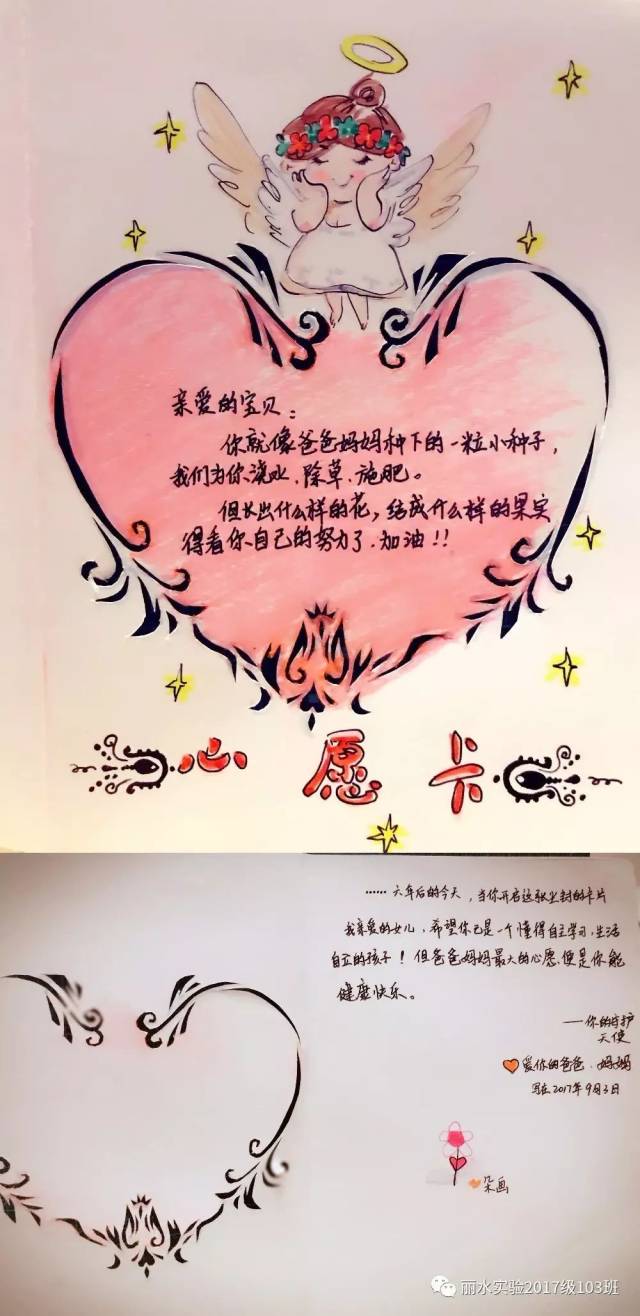 亲爱的宝贝：
你就像爸爸妈妈种下的一粒小种子，
我们为你浇水、除草、施肥。
但长出什么样的花，结成什么样的果实
得看你自己的努力了、加油！！
心愿卡
……六年后的今天，当你开启这张尘封的卡片
我亲爱的女儿，希望你已是一个懂得自主学习、生活
自立的孩子！但爸爸妈妈最大的心愿、便是你能
健康快乐。
——你的守护
天使
爱你的爸爸、妈妈
写在2017年9月3日
朵画
丽水实验2017级103班